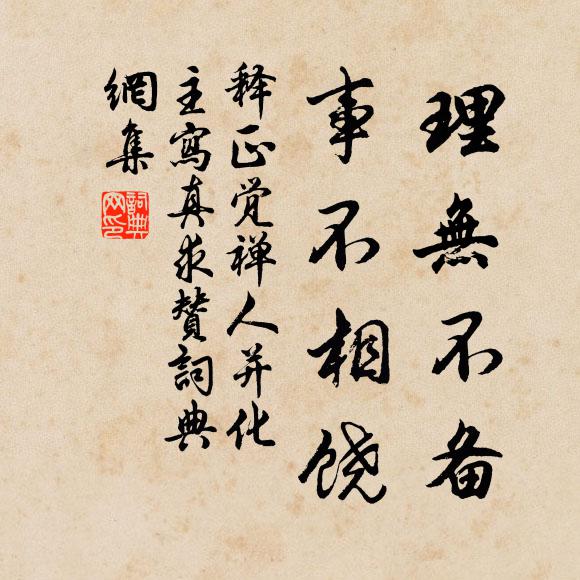 理無不备
事不相饶
释正觉禅人并化
主寫真求赞詞典
網集
詞典
网印